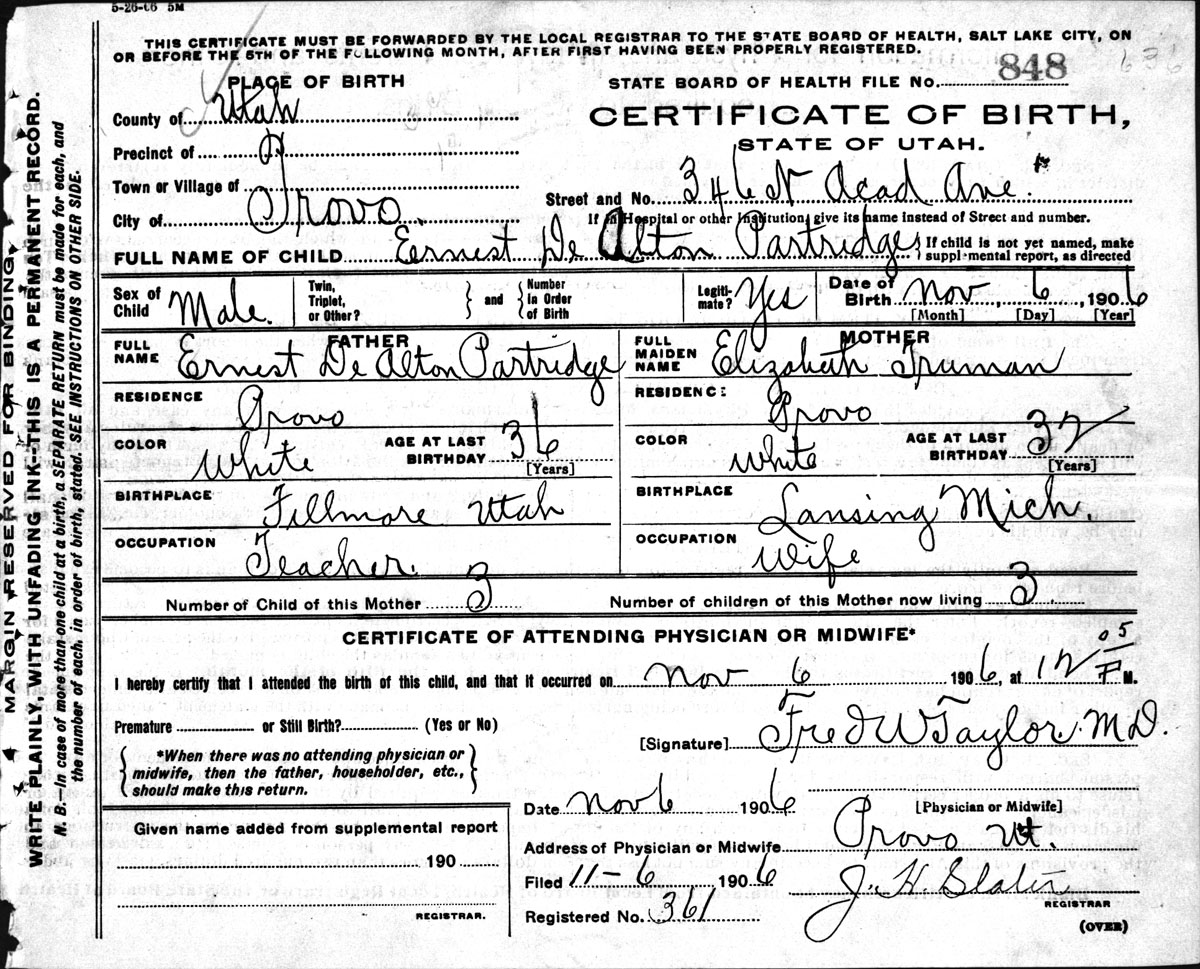 5-26-06 5M
THIS CERTIFICATE MUST BE FORWARDED BY THE LOCAL REGISTRAR TO THE STATE BOARD OF HEALTH, SALT LAKE CITY, ON
OR BEFORE THE 5TH OF THE FOLLOWING MONTH, AFTER FIRST HAVING BEEN PROPERLY REGISTERED.
PLACE OF BIRTH
STATE BOARD OF HEALTH FILE No. 848
County of Utah
CERTIFICATE OF BIRTH,
STATE OF UTAH.
Precinct of
Town or Village of
Street and No. 346 N Acad Ave.
City of Provo.
If in Hospital or other Institution, give its name instead of Street and number.
FULL NAME OF CHILD Ernest De Alton Partridge
If child is not yet named, make
supplemental report, as directed
Sex of Child Male.
Twin, Triplet, or Other?
and
Number in Order of Birth
Legiti-mate? Yes
Date of Birth Nov 6, 1906
[Month] [Day] [Year]
FATHER
FULL NAME Ernest De Alton Partridge
RESIDENCE Provo
COLOR White
AGE AT LAST BIRTHDAY 36 [Years]
BIRTHPLACE Fillmore Utah
OCCUPATION Teacher.
MOTHER
FULL MAIDEN NAME Elizabeth Truman
RESIDENCE Provo
COLOR White
AGE AT LAST BIRTHDAY 32 [Years]
BIRTHPLACE Lansing Mich.
OCCUPATION Wife
Number of Child of this Mother 3
Number of children of this Mother now living 3
CERTIFICATE OF ATTENDING PHYSICIAN OR MIDWIFE*
I hereby certify that I attended the birth of this child, and that it occurred on Nov 6 1906, at 12 05 P M.
Premature or Still Birth? (Yes or No)
[Signature] Fred W Taylor M.D.
*When there was no attending physician or
midwife, then the father, householder, etc.,
should make this return.
Date Nov 6 1906
[Physician or Midwife]
Given name added from supplemental report
190
REGISTRAR.
Address of Physician or Midwife Provo Ut.
Filed 11-6 1906
J. H. Slater
REGISTRAR
Registered No. 361
(OVER)
MARGIN RESERVED FOR BINDING.
WRITE PLAINLY, WITH UNFADING INK--THIS IS A PERMANENT RECORD.
N. B.—In case of more than one child at a birth, a SEPARATE RETURN must be made for each, and
the number of each, in order of birth, stated. SEE INSTRUCTIONS ON OTHER SIDE.